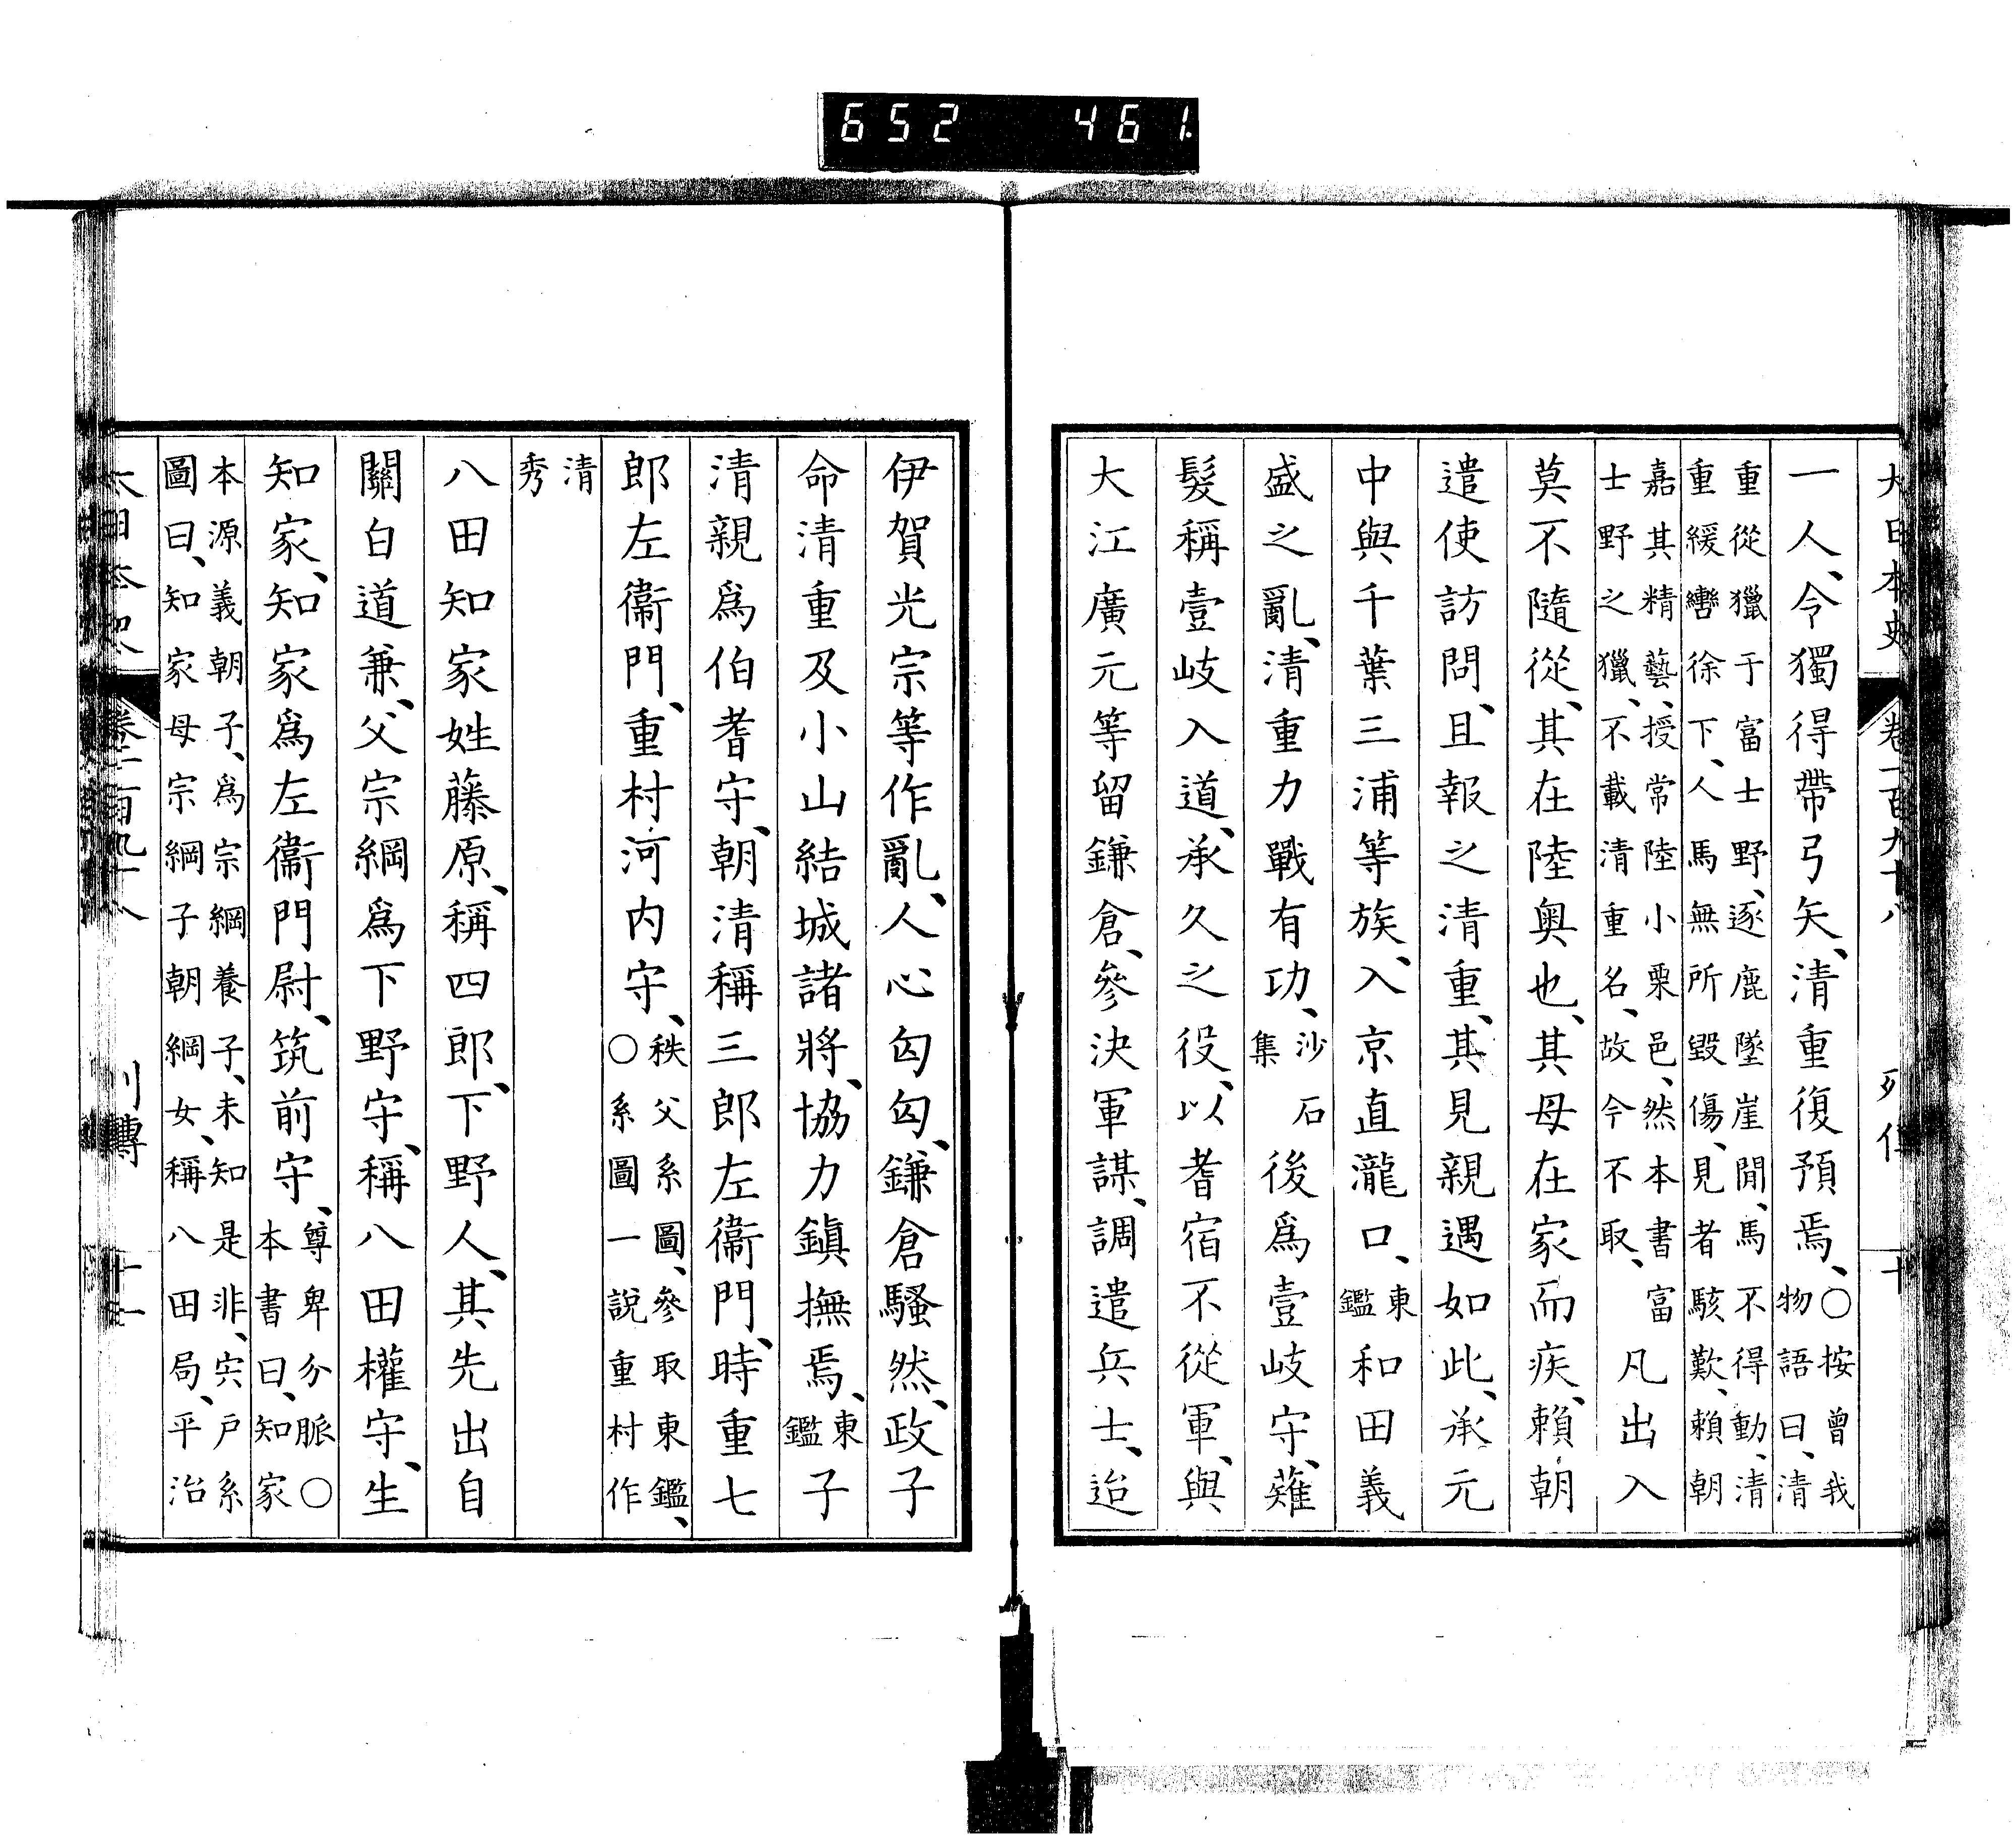 652 461
大日本史 卷一百九十八 列傳 十
一人、令獨得帶弓矢、清重復預焉、○按曾我物語曰、清
重從獵于富士野、逐鹿墜崖間、馬不得動、清重緩轡徐下、人馬無所毀傷、見者駭歎、賴朝
嘉其精藝、授常陸小栗邑、然本書富士野之獵、不載清重名、故今不取、凡出入
莫不隨從、其在陸奥也、其母在家而疾、賴朝
遣使訪問、且報之清重、其見親遇如此、承元
中與千葉三浦等族、入京直瀧口、東鑑和田義
盛之亂、清重力戰有功、沙石集後爲壹岐守、薙
髮稱壹岐入道、承久之役、以耆宿不從軍、與
大江廣元等留鎌倉、參決軍謀、調遣兵士、迨
伊賀光宗等作亂、人心匈匈、鎌倉騷然、政子
命清重及小山結城諸將、協力鎭撫焉、東鑑子
清親爲伯耆守、朝清稱三郎左衞門、時重七
郎左衞門、重村河内守、秩父系圖、參取東鑑、○系圖一說重村作
清秀
八田知家姓藤原、稱四郎、下野人、其先出自
關白道兼、父宗綱爲下野守、稱八田權守、生
知家、知家爲左衞門尉、筑前守、尊卑分脈○本書曰、知家
本源義朝子、爲宗綱養子、未知是非、宍戸系圖曰、知家母宗綱子朝綱女、稱八田局、平治
大日本史 卷一百九十八 列傳 十一